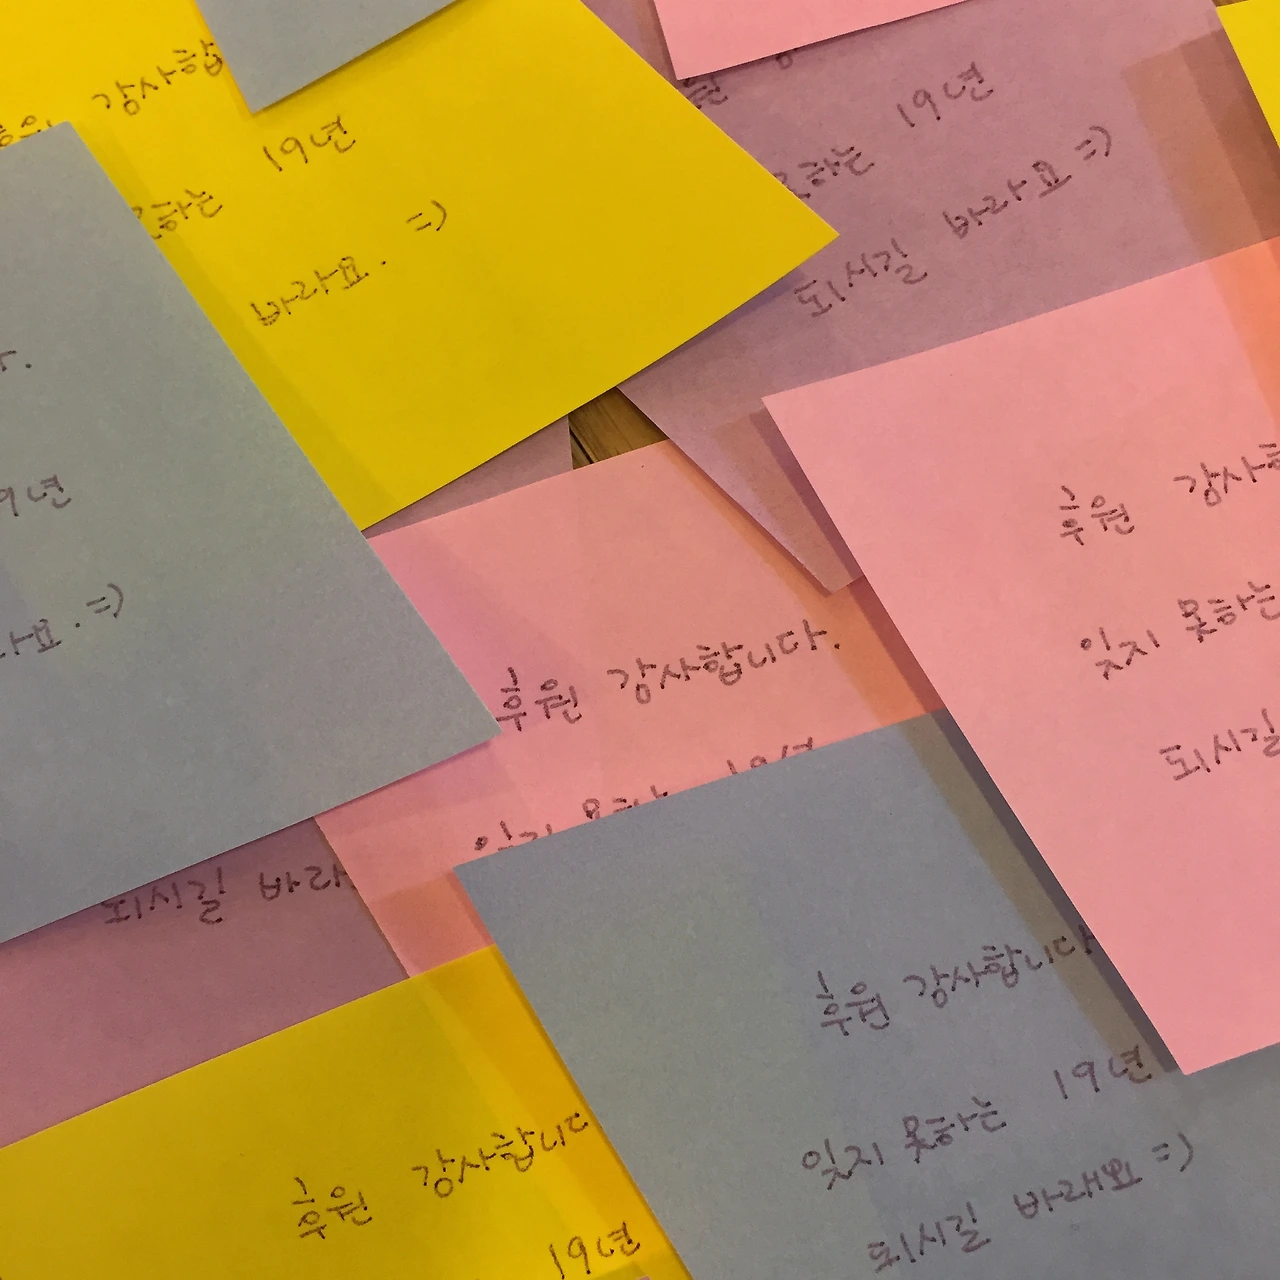 감사합
19년
하는
바라요. =)
19년
하는
바라요 =)
되시길
9년
요. =)
후원 감사합니다.
후원 감사
잊지 못하는
되시길
되시길 바라
후원 감사합니다
19년
잊지 못하는
되시길 바래요 =)
후원 감사합니다
19년